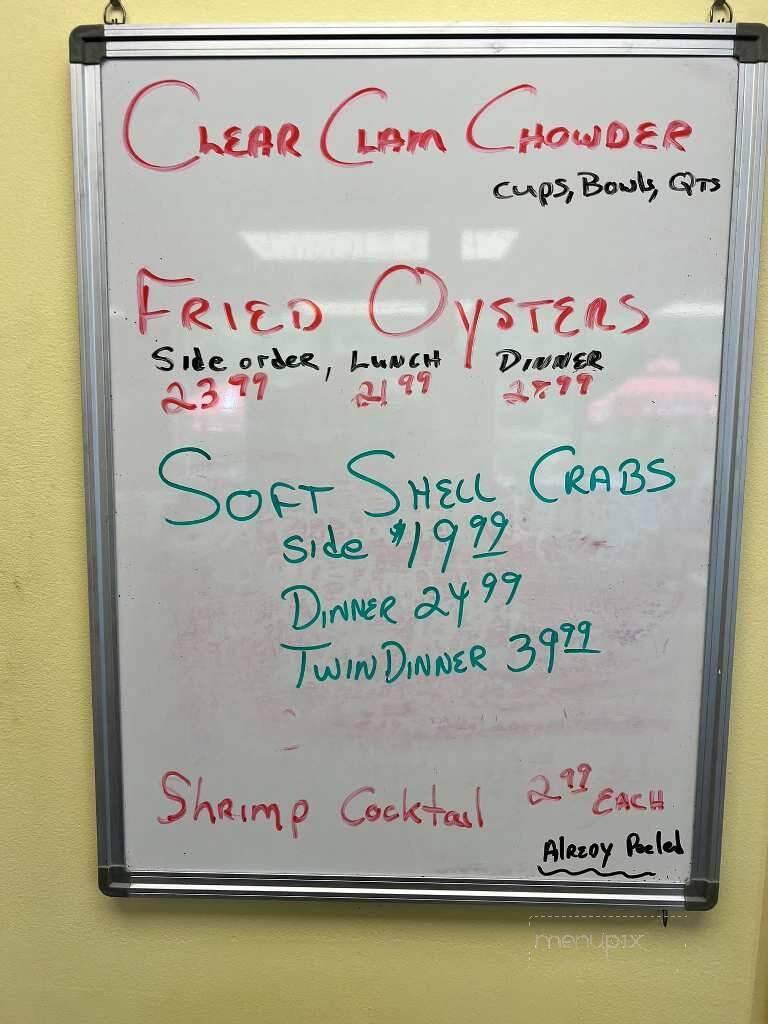 CLEAR CLAM CHOWDER
Cups, Bowls, QTS
FRIED OYSTERS
Side order, LUNCH DINNER
23 99 21 99 28 99
SOFT SHELL CRABS
Side $19 99
DINNER 24 99
TWIN DINNER 39 99
Shrimp Cocktail 2 99 EACH
Alredy Peeled
menupix